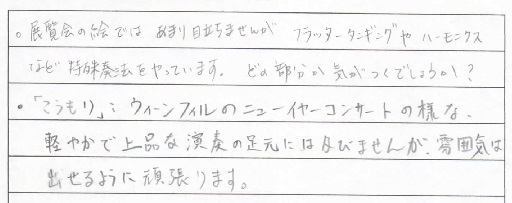 。展覧会の絵では あまり目立ちませんが フラッタータンギングや ハーモニクス
など 特殊奏法をやっています。 どの部分か気がつくでしょうか？
・「こうもり」: ウィーンフィルのニューイヤーコンサートの様な、
軽やかで上品な演奏の足元には及びませんが、雰囲気は
出せるように頑張ります。